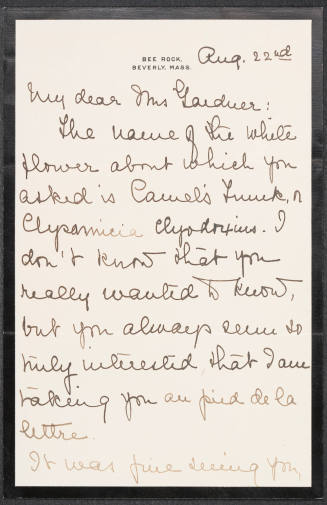 BEE ROCK,
BEVERLY, MASS.
Aug. 22nd
My dear Mrs Gardner:
The name of the white
flower about which you
asked is Camel's Trunk, or
clyodoxius. I
don't know that you
really wanted to know,
but you always seem so
truly interested, that I am
taking you au pied de la
lettre.
It was fine seeing you,